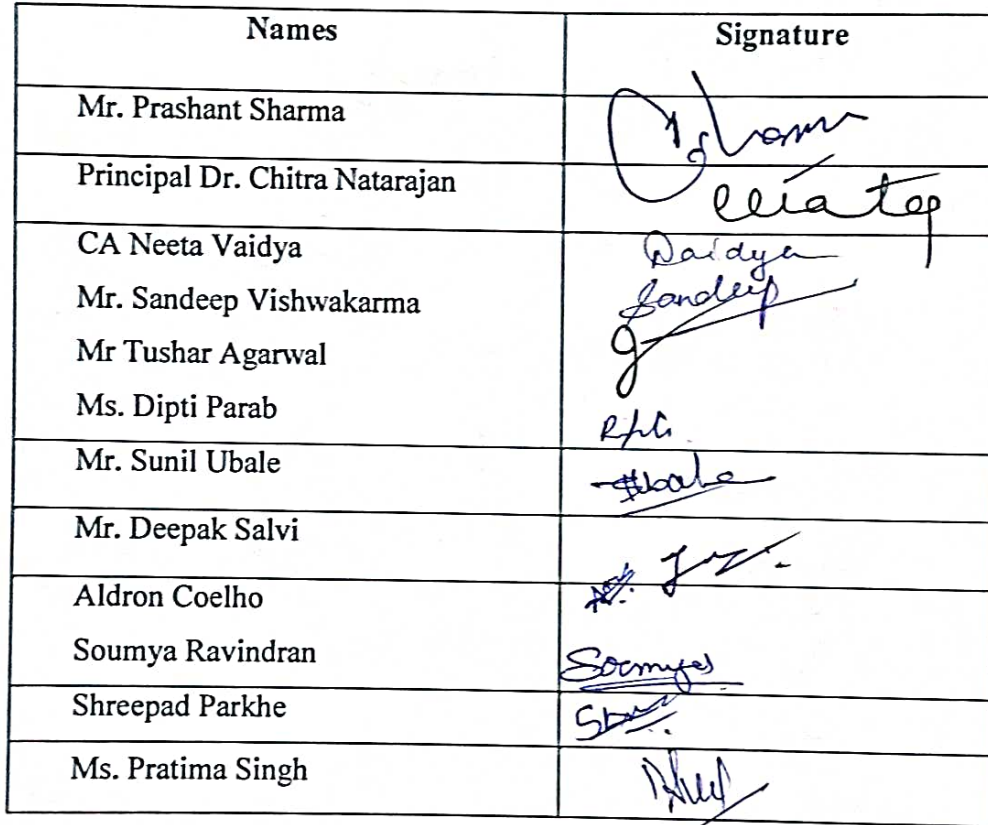 Names Signature
Mr. Prashant Sharma
Principal Dr. Chitra Natarajan
CA Neeta Vaidya Vaidya
Mr. Sandeep Vishwakarma Sandeep
Mr Tushar Agarwal
Ms. Dipti Parab
Mr. Sunil Ubale Subale
Mr. Deepak Salvi
Aldron Coelho
Soumya Ravindran Soumya
Shreepad Parkhe
Ms. Pratima Singh